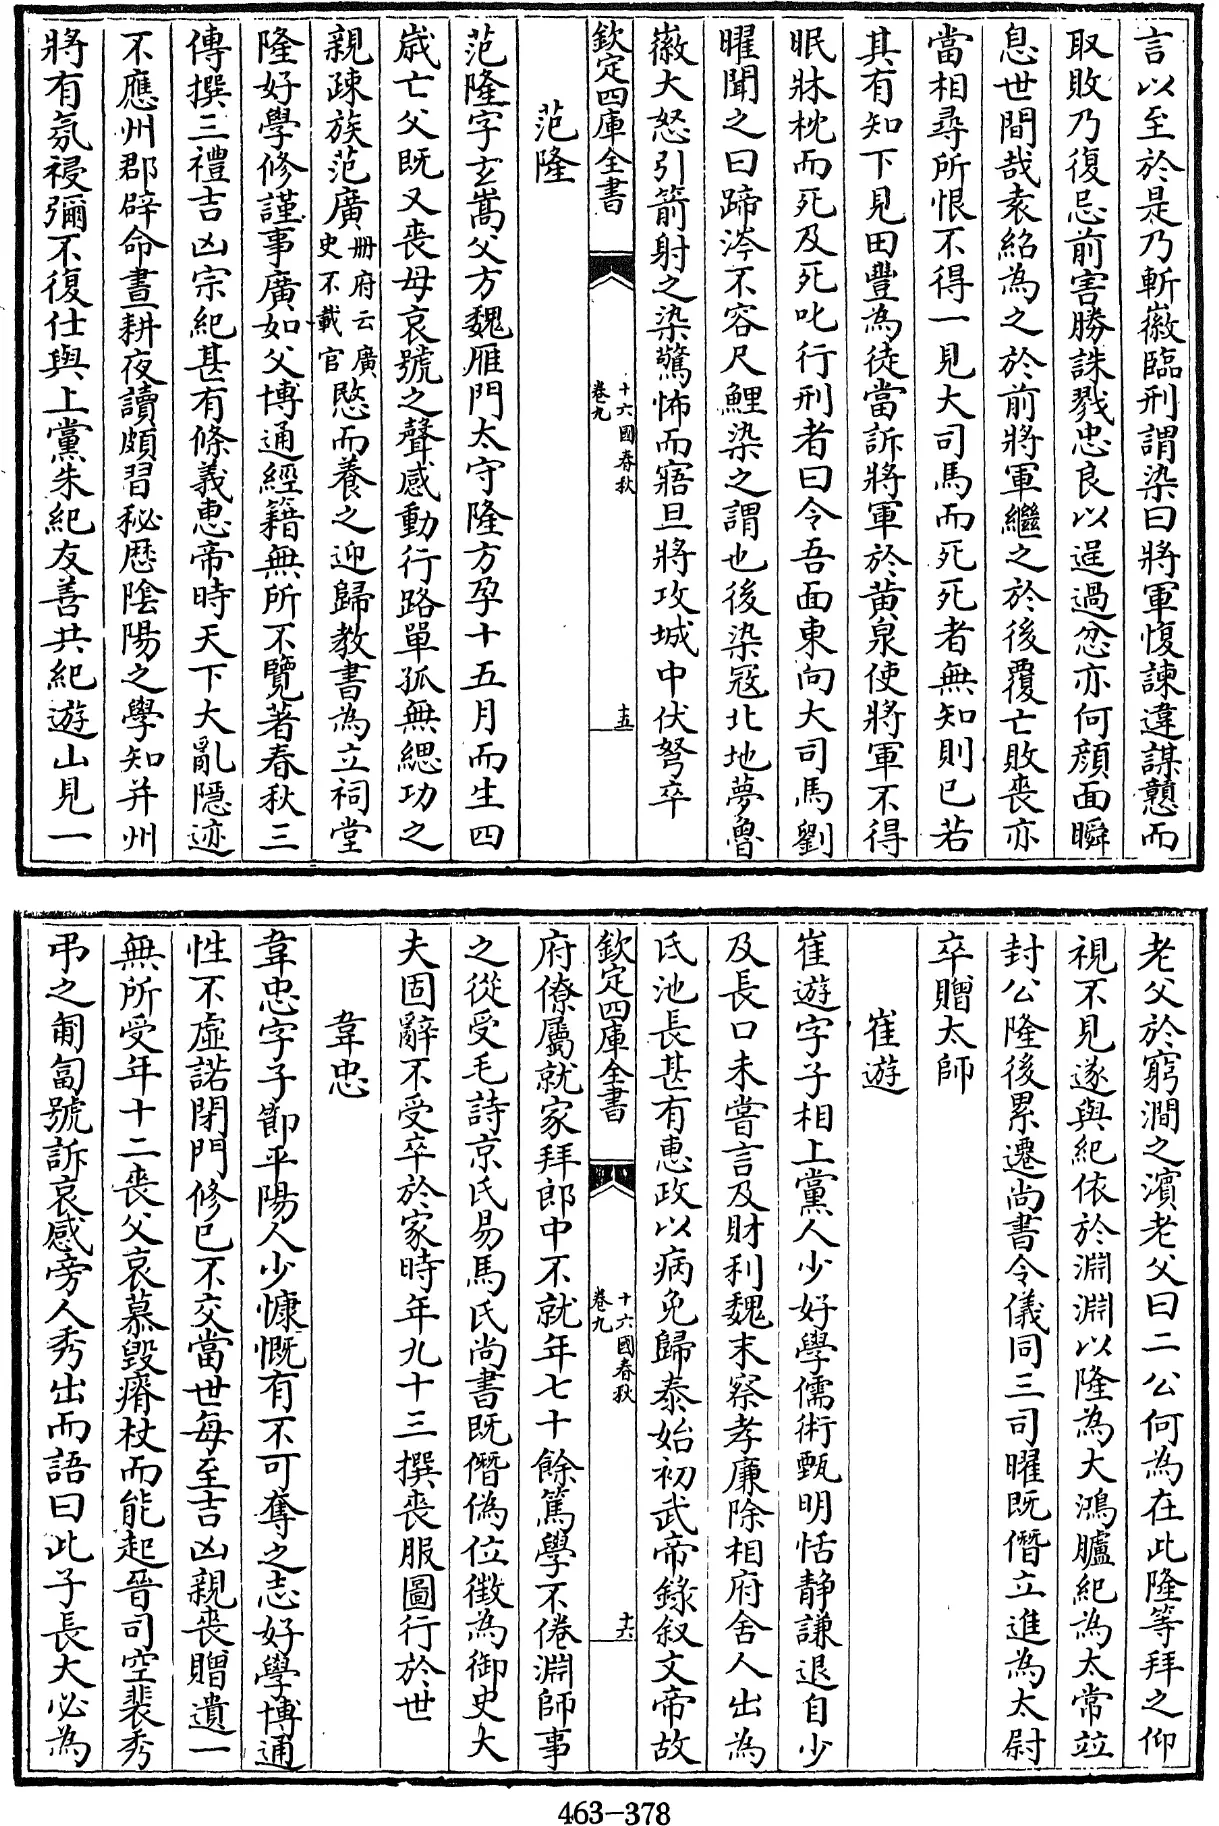 言以至於是乃斬徽臨刑謂染曰將軍愎諫違謀戇而
取敗乃復忌前害勝誅戮忠良以逞過忿亦何顔面瞬
息世間哉袁紹為之於前將軍繼之於後覆亡敗喪亦
當相尋所恨不得一見大司馬而死死者無知則已若
其有知下見田豐為徒當訴將軍於黄泉使將軍不得
眠牀枕而死及死叱行刑者曰令吾面東向大司馬劉
曜聞之曰蹄涔不容尺鯉染之謂也後染冦北地夢魯
徽大怒引箭射之染驚怖而寤旦將攻城中伏弩卒
欽定四庫全書
十六國春秋
卷九
十五
范隆
范隆字玄嵩父方魏雁門太守隆方孕十五月而生四
歳亡父既又喪母哀號之聲感動行路單孤無緦功之
親疎族范廣册府云廣史不載官愍而養之迎歸教書為立祠堂
隆好學修謹事廣如父博通經籍無所不覽著春秋三
傳撰三禮吉凶宗紀甚有條義惠帝時天下大亂隱迹
不應州郡辟命晝耕夜讀頗習秘歴陰陽之學知并州
將有氛祲彌不復仕與上黨朱紀友善共紀遊山見一
老父於窮澗之濱老父曰二公何為在此隆等拜之仰
視不見遂與紀依於淵淵以隆為大鴻臚紀為太常竝
封公隆後累遷尚書令儀同三司曜既僭立進為太尉
卒贈太師
崔遊
崔遊字子相上黨人少好學儒術甄明恬静謙退自少
及長口未嘗言及財利魏末察孝廉除相府舍人出為
氏池長甚有惠政以病免歸泰始初武帝錄叙文帝故
欽定四庫全書
十六國春秋
卷九
十六
府僚屬就家拜郎中不就年七十餘篤學不倦淵師事
之從受毛詩京氏易馬氏尚書既僭偽位徵為御史大
夫固辭不受卒於家時年九十三撰喪服圖行於世
韋忠
韋忠字子節平陽人少慷慨有不可奪之志好學博通
性不虛諾閉門修已不交當世每至吉凶親喪贈遺一
無所受年十二喪父哀慕毀瘠杖而能起晉司空裴秀
弔之匍匐號訴哀感旁人秀出而語曰此子長大必為
463-378